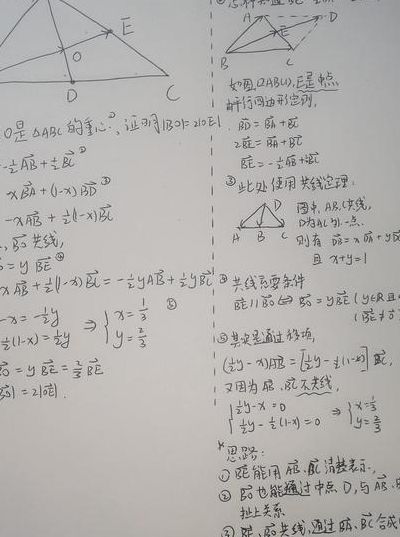 E
O
D
C
O是△ABC的重心, 证明|BO|=2|OE|.
-½AB+½BC ②
xBA+(1-x)BD ③
-xAB+½(1-x)BC
BO共线,
= yBE ④
xAB+½(1-x)BC=-½yAB+½yBC
-x=-½y
½(1-x)=½y
⇒ { x=⅓
y=⅔ ⑤
= yBE=⅔BE
=2|OE|.
A
D
E
B
C
如图(△ABC), E是中点
由平行四边形定则,
BD=BA+BC
2BE=BA+BC
BE=-½AB+½BC
③此处使用共线定理:
D
A B C
图中, A,B,C共线,
D为AC外一点.
则有 DB=xDA+y
且 x+y=1
④共线充要条件
BE//BO⇔BO=yBE(y∈R且
(BE≠0
⑤其实是通过移项,
(½y-x)AB=[½y-½(1-x)]BC,
又因为AB,BC不共线,
{ ½y-x=0
½y-½(1-x)=0
⇒ { x=⅓
y=⅔
*思路:
①BE能用AB、BC清楚表示,
②BO也能通过中点D,与AB、
扯上关系
③BE、BO共线,通过BA、BC合成